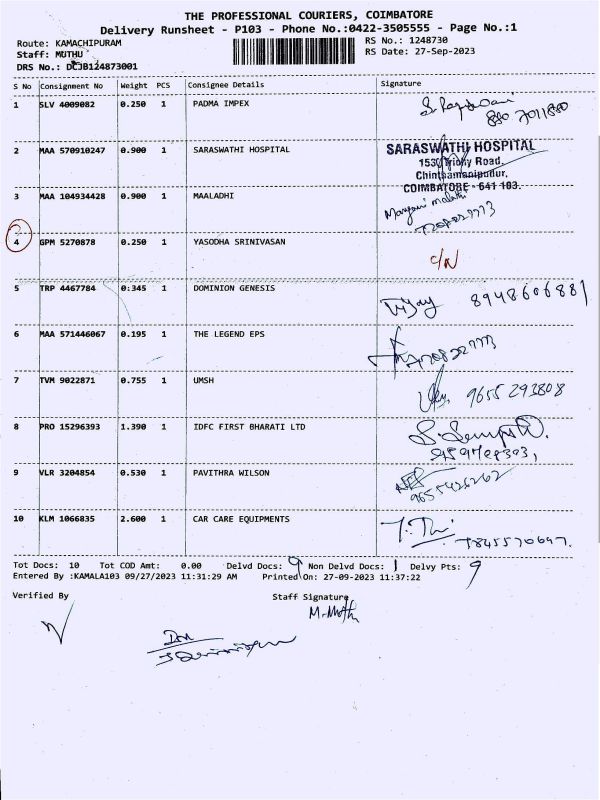 THE PROFESSIONAL COURIERS, COIMBATORE
Delivery Runsheet - P103 - Phone No.:0422-3505555 - Page No.:1
Route: KAMACHIPURAM RS No.: 1248730
Staff: MUTHU RS Date: 27-Sep-2023
DRS No.: DCJB124873001
S No Consignment No Weight PCS Consignee Details Signature
1 SLV 4009082 0.250 1 PADMA IMPEX
2 MAA 570910247 0.900 1 SARASWATHI HOSPITAL SARASWATHI HOSPITAL
Trichy Road,
Chinthamanipudur,
COIMBATORE - 641 103.
3 MAA 104934428 0.900 1 MAALADHI
4 GPM 5270878 0.250 1 YASODHA SRINIVASAN C/N
5 TRP 4467784 0.345 1 DOMINION GENESIS Vijay 8948606881
6 MAA 571446067 0.195 1 THE LEGEND EPS
7 TVM 9022871 0.755 1 UMSH 9655293808
8 PRO 15296393 1.390 1 IDFC FIRST BHARATI LTD
9 VLR 3204854 0.530 1 PAVITHRA WILSON 9655426262
10 KLM 1066835 2.600 1 CAR CARE EQUIPMENTS 7845570697.
Tot Docs: 10 Tot COD Amt: 0.00 Delvd Docs: 9 Non Delvd Docs: 1 Delvy Pts: 9
Entered By :KAMALA103 09/27/2023 11:31:29 AM Printed On: 27-09-2023 11:37:22
Verified By Staff Signature
M-Muth